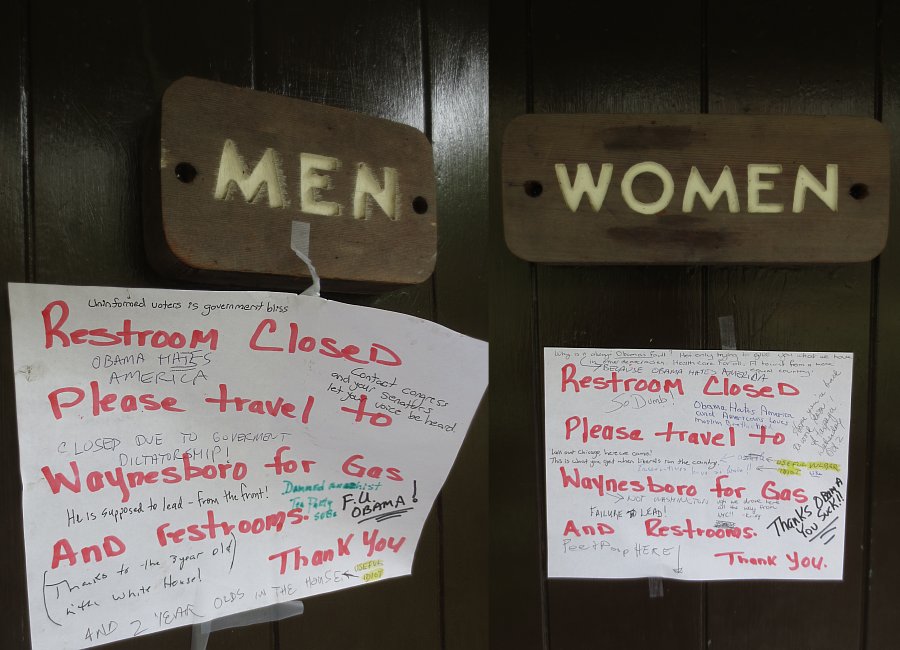 MEN
Uninformed voters is government bliss
Restroom Closed
OBAMA HATES
AMERICA
Contact congress
and your senators
let your voice be heard.
Please travel to
CLOSED DUE TO GOVERMENT
DICTATORSHIP!
Waynesboro for Gas
He is supposed to lead - from the front!
Damned anarchist
Tea Party
SOBs
F.U.
OBAMA!
And restrooms.
Thank You
(Thanks to the 3 year old
in the White House!)
AND 2 YEAR OLDS IN THE HOUSE
USEFUL
IDIOT
WOMEN
Why is it always Obamas Fault! Not only trying to give you what we have
in other democracies. Health care For all. A
BECAUSE OBAMA HATES AMERICA
Restroom Closed
So Dumb!
Obama Hates America
and Americans, loves
Muslim
Please travel to
here we come!
This is what you get when liberals run the country.
USEFUL
Waynesboro for Gas
NOT WASHINGTON
we drove here
all the way from
FAILURE TO LEAD!
THANKS OBAMA
YOU SUCK!!
And Restrooms.
Pee & Poop HERE!
Thank You.